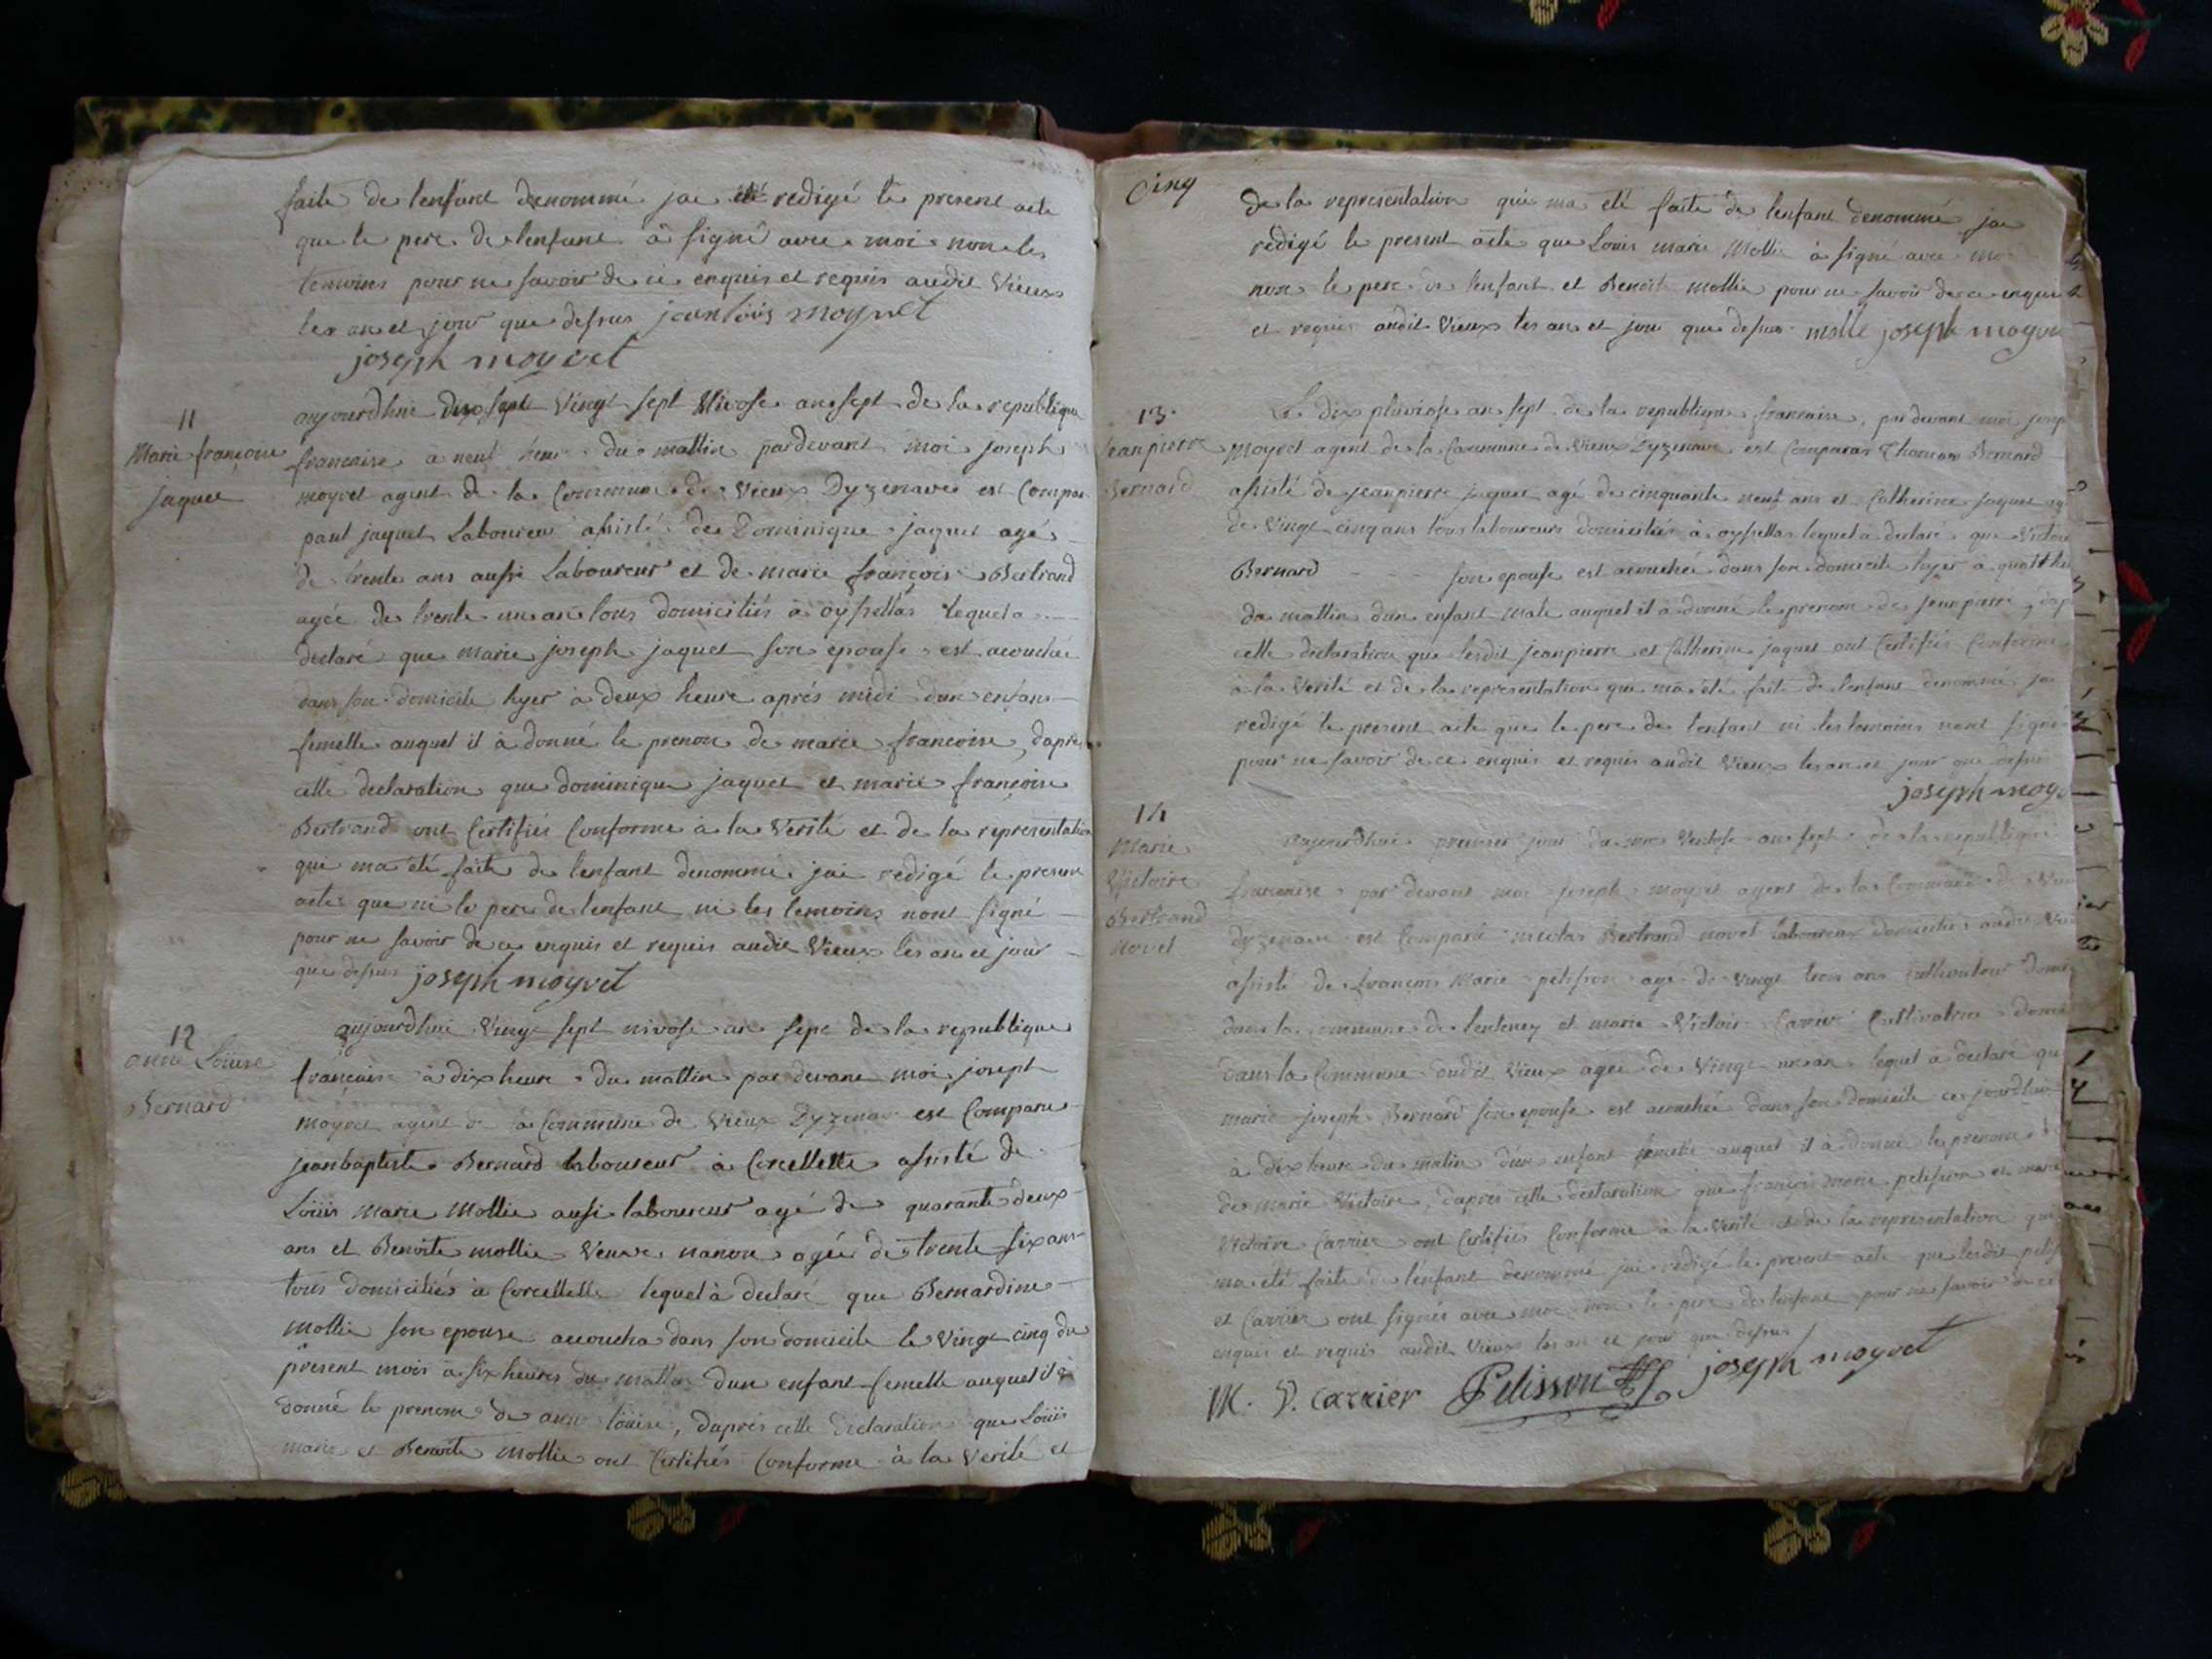 faite de lenfant denommé jai redigé le present acte
que le pere de lenfant à signé avec moi non les
temoins pour ne savoir de ce enquis et requis audit Vieux
les an et jour que dessus jean loüis moyret
joseph moyret
11
Marie françoise
jaquet
aujourdhui vingt sept Nivose an sept de la republique
francaise a neuf heure du mattin pardevant moi joseph
moyret agent de la Commune de Vieux Dyzenave est Compar
paul jaquet Laboureur assisté de Dominique jaquet agé
de trente ans aussi Laboureur et de marie françoise Bertrand
agée de trente un an tous domiciliés à oysellas lequel a
declaré que marie joseph jaquet son epouse est acouchée
dans son domicile hyer à deux heure aprés midi dun enfant
femelle auquel il à donné le prenom de marie francoise, dapres
cette declaration que dominique jaquet et marie françoise
Bertrand ont Certifiés Conforme à la Verité et de la representation
qui ma été faite de lenfant denommé jai redigé le present
acte que ni le pere de lenfant ni les temoins nont signé
pour ne savoir de ce enquis et requis audit Vieux les an et jour
que dessus joseph moyret
12
anne Loüise
Bernard
aujourdhui Vingt sept nivose an sept de la republique
françaisse à dix heure du mattin par devant moi joseph
moyret agent de la Commune de Vieux Dyzenave est Comparu
jeanbaptiste Bernard laboureur à Corcellette assisté de
Loüis Marie Mollie aussi laboureur agé de quarante deux
ans et Benoite mollie Veuve agée de trente six ans
tous domiciliés à Corcellette lequel à declaré que Bernardine
mollie son epouse accoucha dans son domicile le vingt cinq du
present mois à six heures du mattin dun enfant femelle auquel il à
donné le prenom de anne loüise, daprés cette declaration que Loüis
marie et Benoite Mollie ont Certifiés Conforme à la Verité et
Cinq
de la representation qui ma eté faite de lenfant denommé jai
redigé le present acte que Louis marie Mollie à signé avec moi
non le pere de lenfant et Benoite mollie pour ne savoir de ce enquis
et requis audit Vieux les an et jour que dessus molle joseph moyre
13
jean pierre
Bernard
Le dix pluviose an sept de la republique francaise, par devant moi josep
Moyret agent de la Commune de Vieux Dyzenave est Comparu Thomas Bernard
assisté de jeanpierre jaquet agé de cinquante neuf ans et Catherine jaquet ag
de Vingt cinq ans tous laboureurs domiciliés à oysellas lequel a declaré que Victoire
Bernard son epouse est acouchée dans son domicile hyer à quatt he
du mattin dun enfant male auquel il à donné le prenom de jeanpierre, dap
cette declaration que lesdit jeanpierre et Catherine jaquet ont Certifiés Conforme
à la Verité et de la representation que ma eté faite de lenfant denommé jai
redigé le present acte que le pere de lenfant ni les temoins nont signé
pour ne savoir de ce enquis et requis audit Vieux les an et jour que dessus
joseph moyr
14
Marie
Victoire
Bertrand
novet
aujourdhui premier jour du mois Ventose an sept de la republique
francaise par devant moi joseph moyret agent de la Commune de Vieu
dyzenave est Comparu nicolas Bertrand novet laboureur domicilié audit Vieu
assisté de françois Marie pelisson agé de vingt trois ans Cultivateur domi
dans la commune de lentenay et marie Victoire Carrier Cultivatrice domi
dans la Commune dudit Vieux agée de Vingt un an lequel à declaré qu
marie joseph Bernard son epouse est acouchée dans son domicile ce jourdhui
à dix heure du matin dun enfant femelle auquel il à donné le prenom
de marie Victoire, daprés cette declaration que françois marie pelisson et marie
Victoire Carrier ont Certifiés Conforme à la Verité et de la representation qui
ma eté faite de lenfant denommé jai redigé le present acte que lesdit peliss
et Carrier ont signés avec moi non le pere de lenfant pour ne savoir de ce
enquis et requis audit Vieux les an et jour que dessus
M. V. Carrier Pelisson joseph moyret